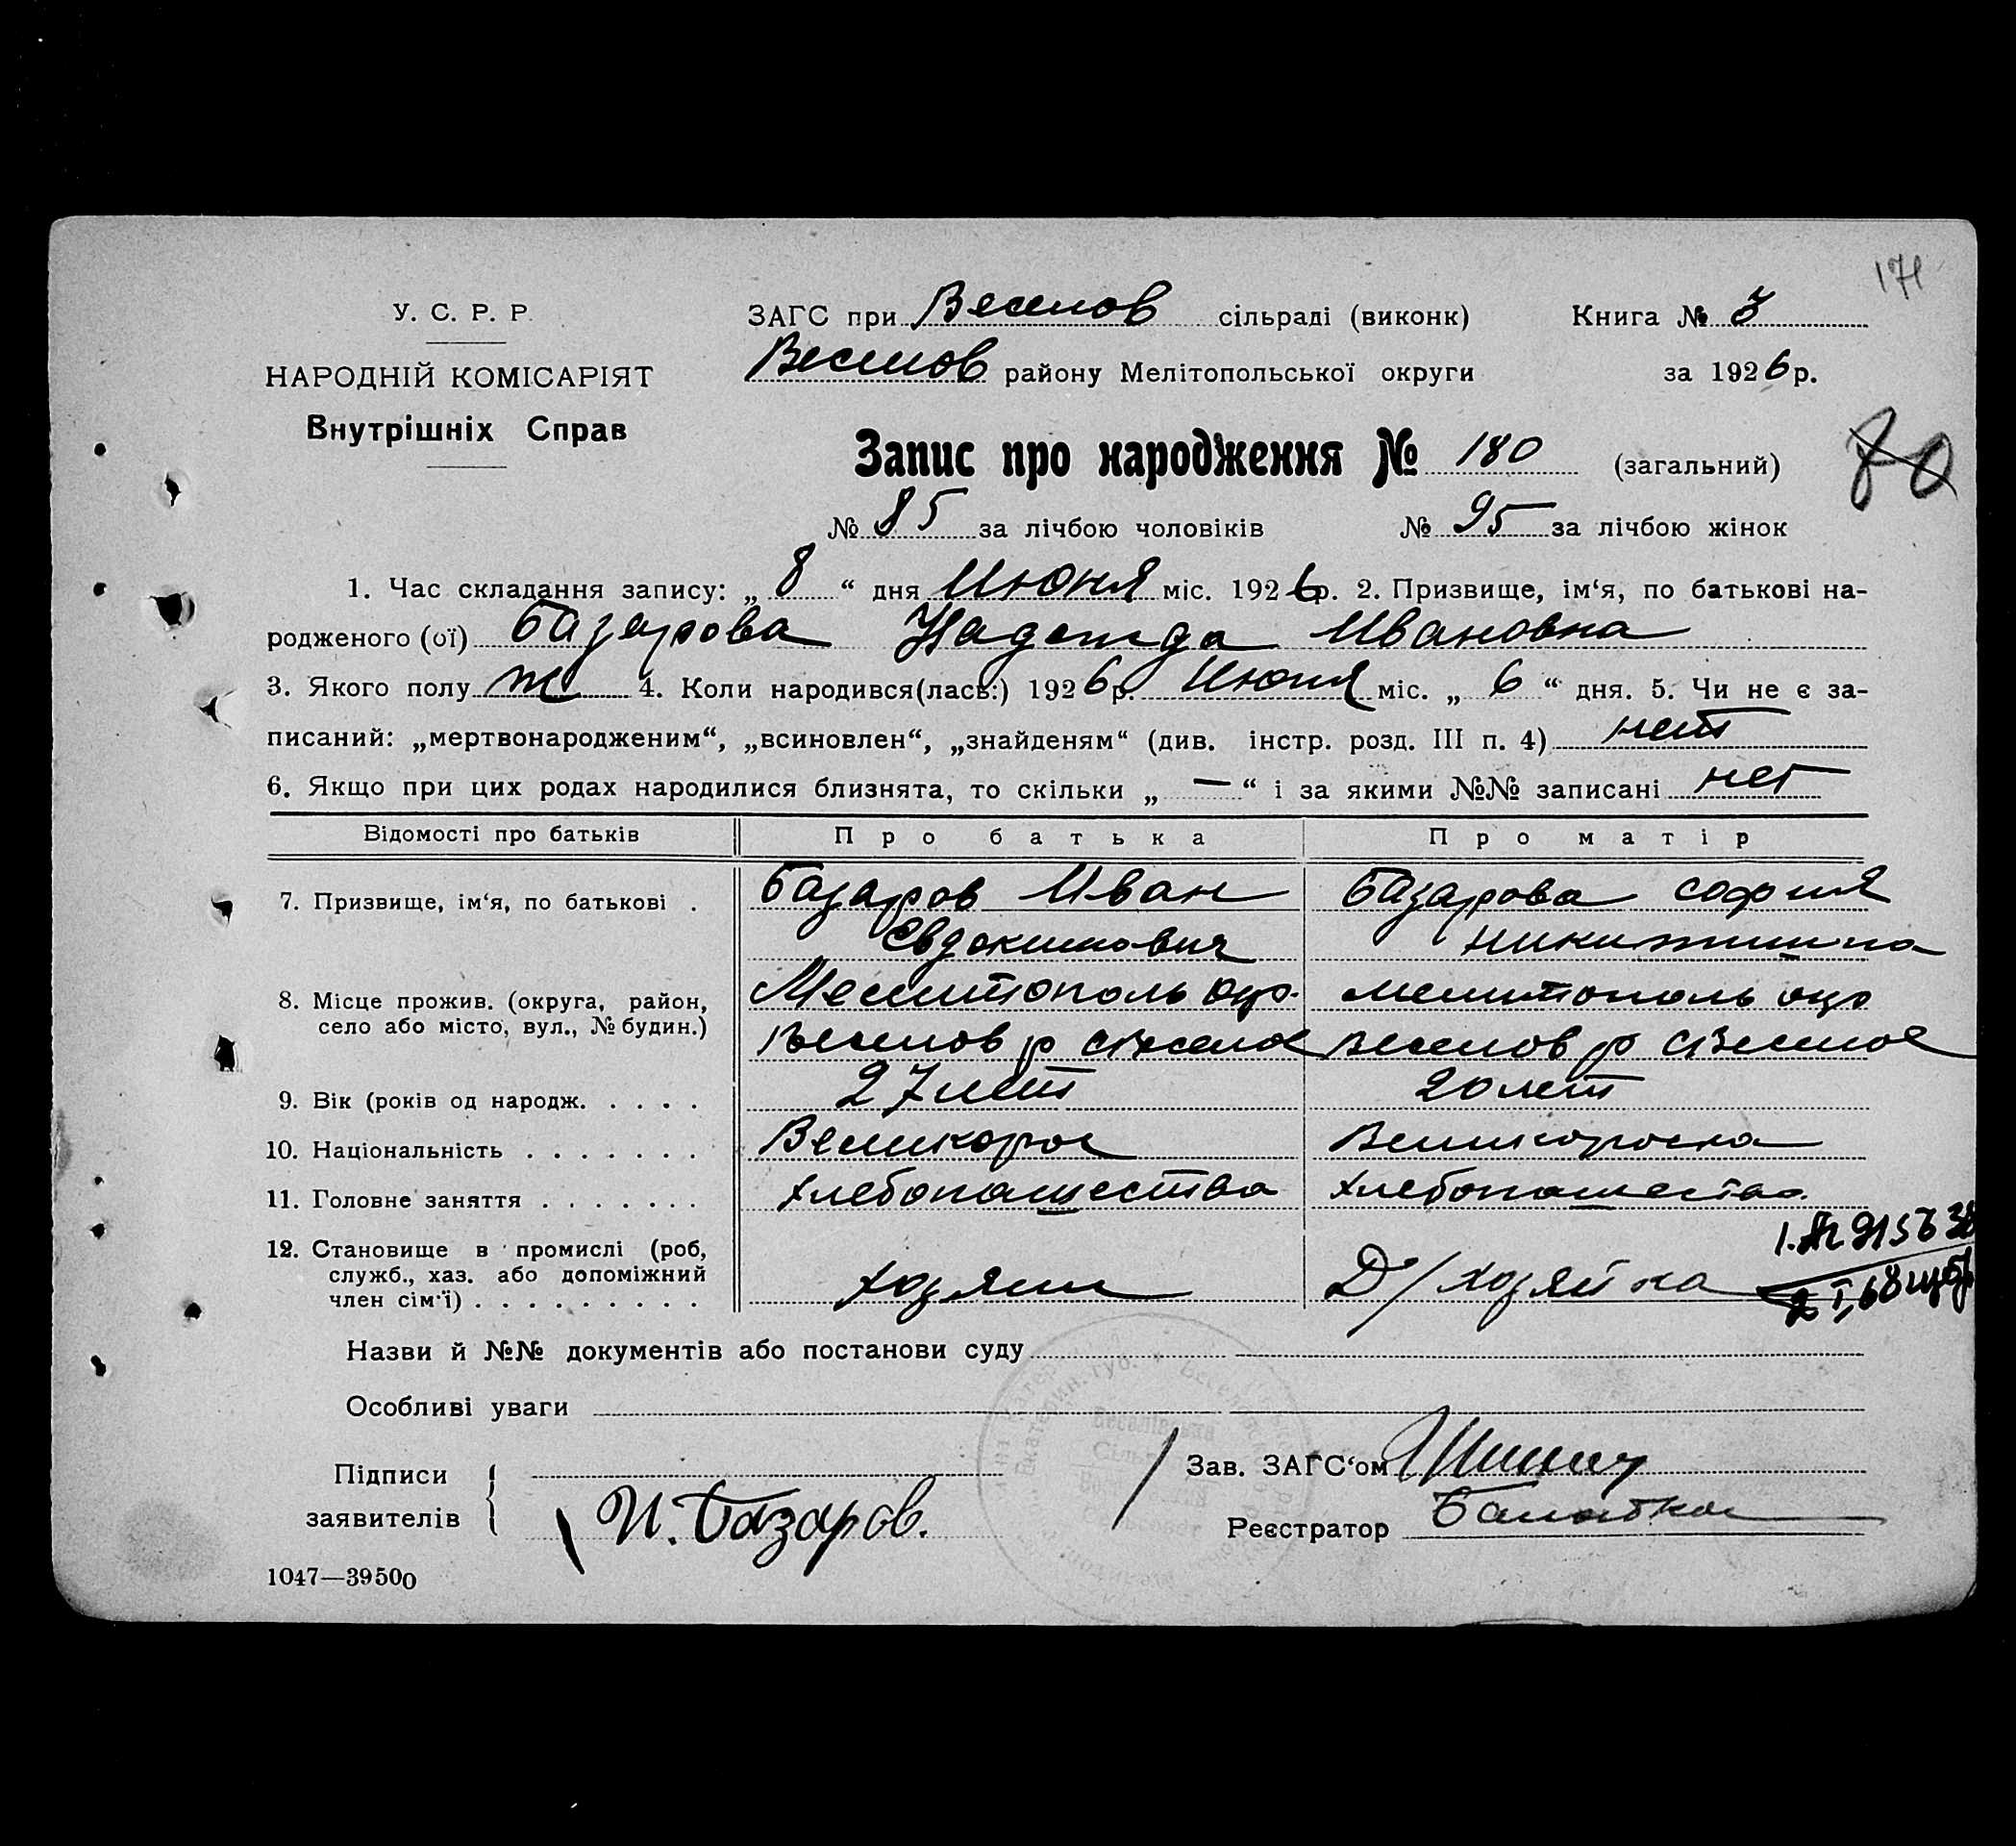 171
У. С. Р. Р.
НАРОДНІЙ КОМІСАРІЯТ
Внутрішніх Справ
ЗАГС при Веселов сільраді (виконк)
Книга № 3
Веселов району Мелітопольської округи
за 1926 р.
Запис про народження № 180 (загальний)
80
№ 85 за лічбою чоловіків № 95 за лічбою жінок
1. Час складання запису: „ 8 “ дня Июня міс. 1926 р. 2. Призвище, ім‘я, по батькові на-
родженого (ої) Базарова Надежда Ивановна
3. Якого полу ж 4. Коли народився(лась:) 1926 р. Июня міс. „ 6 “ дня. 5. Чи не є за-
писаний: „мертвонародженим“, „всиновлен“, „знайденям“ (див. інстр. розд. III п. 4) нет
6. Якщо при цих родах народилися близнята, то скільки „ — “ і за якими №№ записані нет
Відомості про батьків Про батька Про матір
7. Призвище, ім‘я, по батькові . Базаров Иван Базарова София
Евдокимович Никитишна
8. Місце прожив. (округа, район, Мелитополь окр. Мелитополь окр
село або місто, вул., № будин.)
Веселов р с Веселое Веселов р с Веселое
9. Вік (років од народж. . . . . 27 лет 20 лет
10. Національність . . . . . . . Великорос Великороска
11. Головне заняття . . . . . . . Хлебопашества Хлебопашества
12. Становище в промислі (роб,
служб., хаз. або допоміжний
член сім‘ї) . . . . . . . . . Хозяин Д/хозяйка
Назви й №№ документів або постанови суду
Особливі уваги
Підписи
заявителів И. Базаров.
Зав. ЗАГС‘ом
Реєстратор
1047—39500